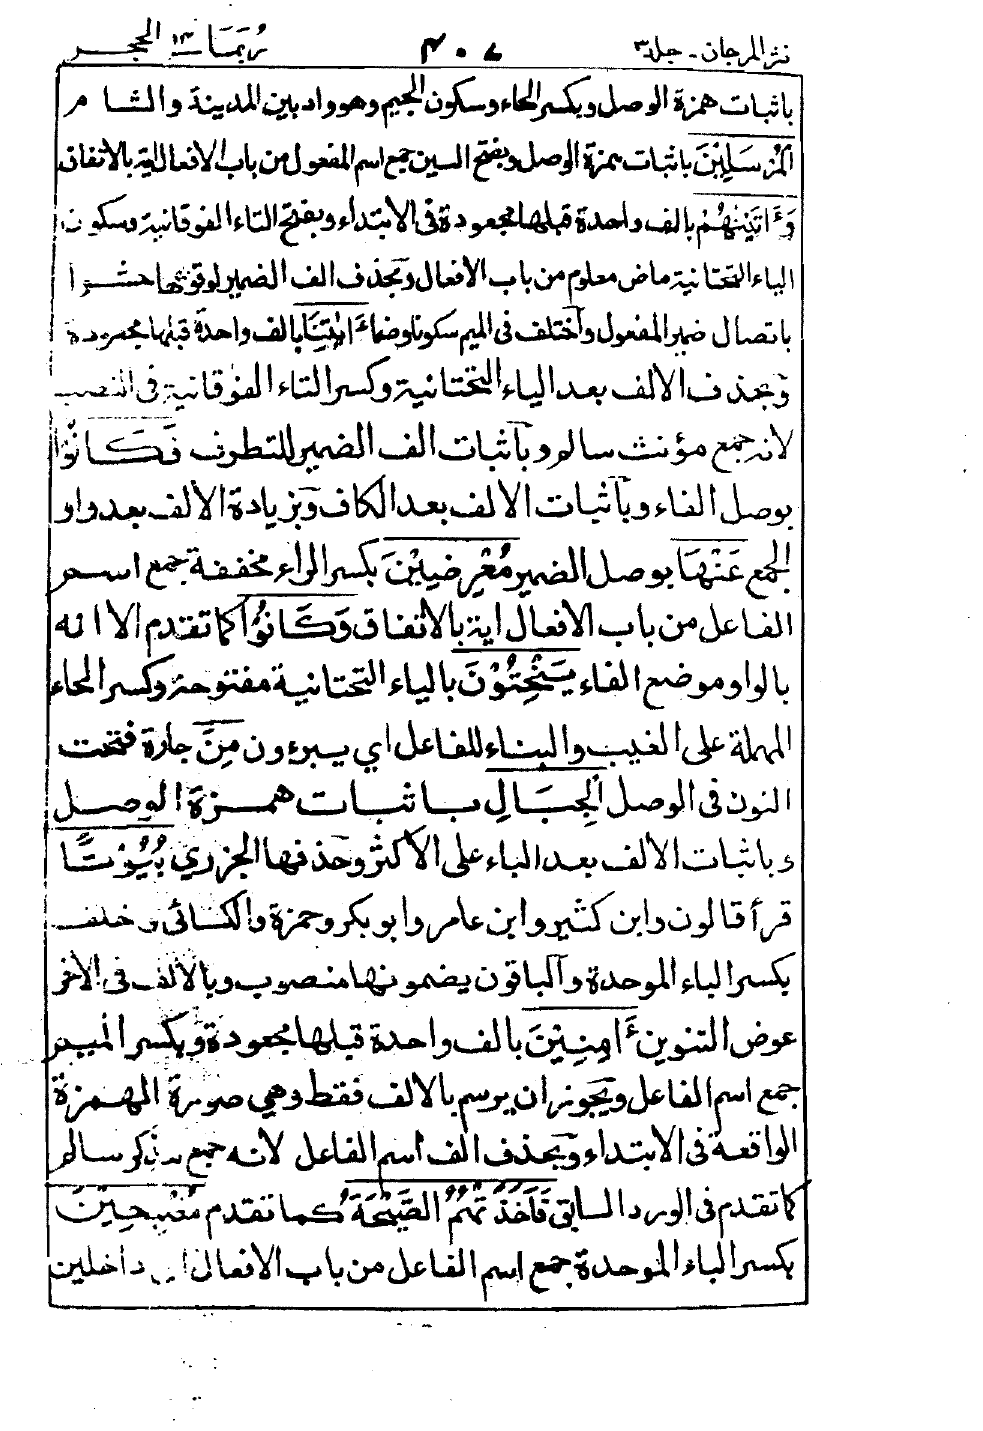 نثر المرجان - جلد ٣ ٤٠٧ رُبَمَا ١٤ الحجر
باثبات همزة الوصل وبكسر الحاء وسكون الجيم وهو واد بين المدينة والشام
الْمُرْسَلِيْنَ باثبات همزة الوصل وبفتح السين جمع اسم المفعول من باب الافعال اية بالاتفاق
وَءَاتَيْنٰهُمْ بالف واحدة قبلها مجعودة فى الابتداء وبفتح التاء الفوقانية وسكون
الياء التحتانية ماض معلوم من باب الافعال وبحذف الف الضمير لوقوعها حشوا
باتصال ضمير المفعول واختلف فى الميم سكونا وضما ءَايٰتِنَا بالف واحدة قبلها مجعودة
وبحذف الالف بعد الياء التحتانية وكسر التاء الفوقانية فى النصب
لانه جمع مؤنث سالم وباثبات الف الضمير للتطرف فَكَانُوْا
بوصل الفاء وباثبات الالف بعد الكاف وبزيادة الالف بعد واو
الجمع عَنْهَا بوصل الضمير مُعْرِضِيْنَ بكسر الراء مخففة جمع اسم
الفاعل من باب الافعال اية بالاتفاق وَكَانُوْا كما تقدم الا انه
بالواو موضع الفاء يَنْحِتُوْنَ بالياء التحتانية مفتوحة وكسر الحاء
المهملة على الغيب والبناء للفاعل اي يبرءون مِنَ جارة فتحت
النون فى الوصل الْجِبَالِ باثبات همزة الوصل
وباثبات الالف بعد الباء على الاكثر وحذفها الجزري بُيُوْتًا
قرأ قالون وابن كثير وابن عامر وابو بكر وحمزة والكسائى وخلف
بكسر الباء الموحدة والباقون يضمونها منصوب وبالالف فى الاخر
عوض التنوين ءَامِنِيْنَ بالف واحدة قبلها مجعودة وبكسر الميم
جمع اسم الفاعل ويجوز ان يرسم بالالف فقط وهي صورة الهمزة
الواقعة فى الابتداء وبحذف الف اسم الفاعل لانه جمع مذكر سالم
كما تقدم فى الورد السابق فَاَخَذَتْهُمُ الصَّيْحَةُ كما تقدم مُصْبِحِيْنَ
بكسر الباء الموحدة جمع اسم الفاعل من باب الافعال اي داخلين